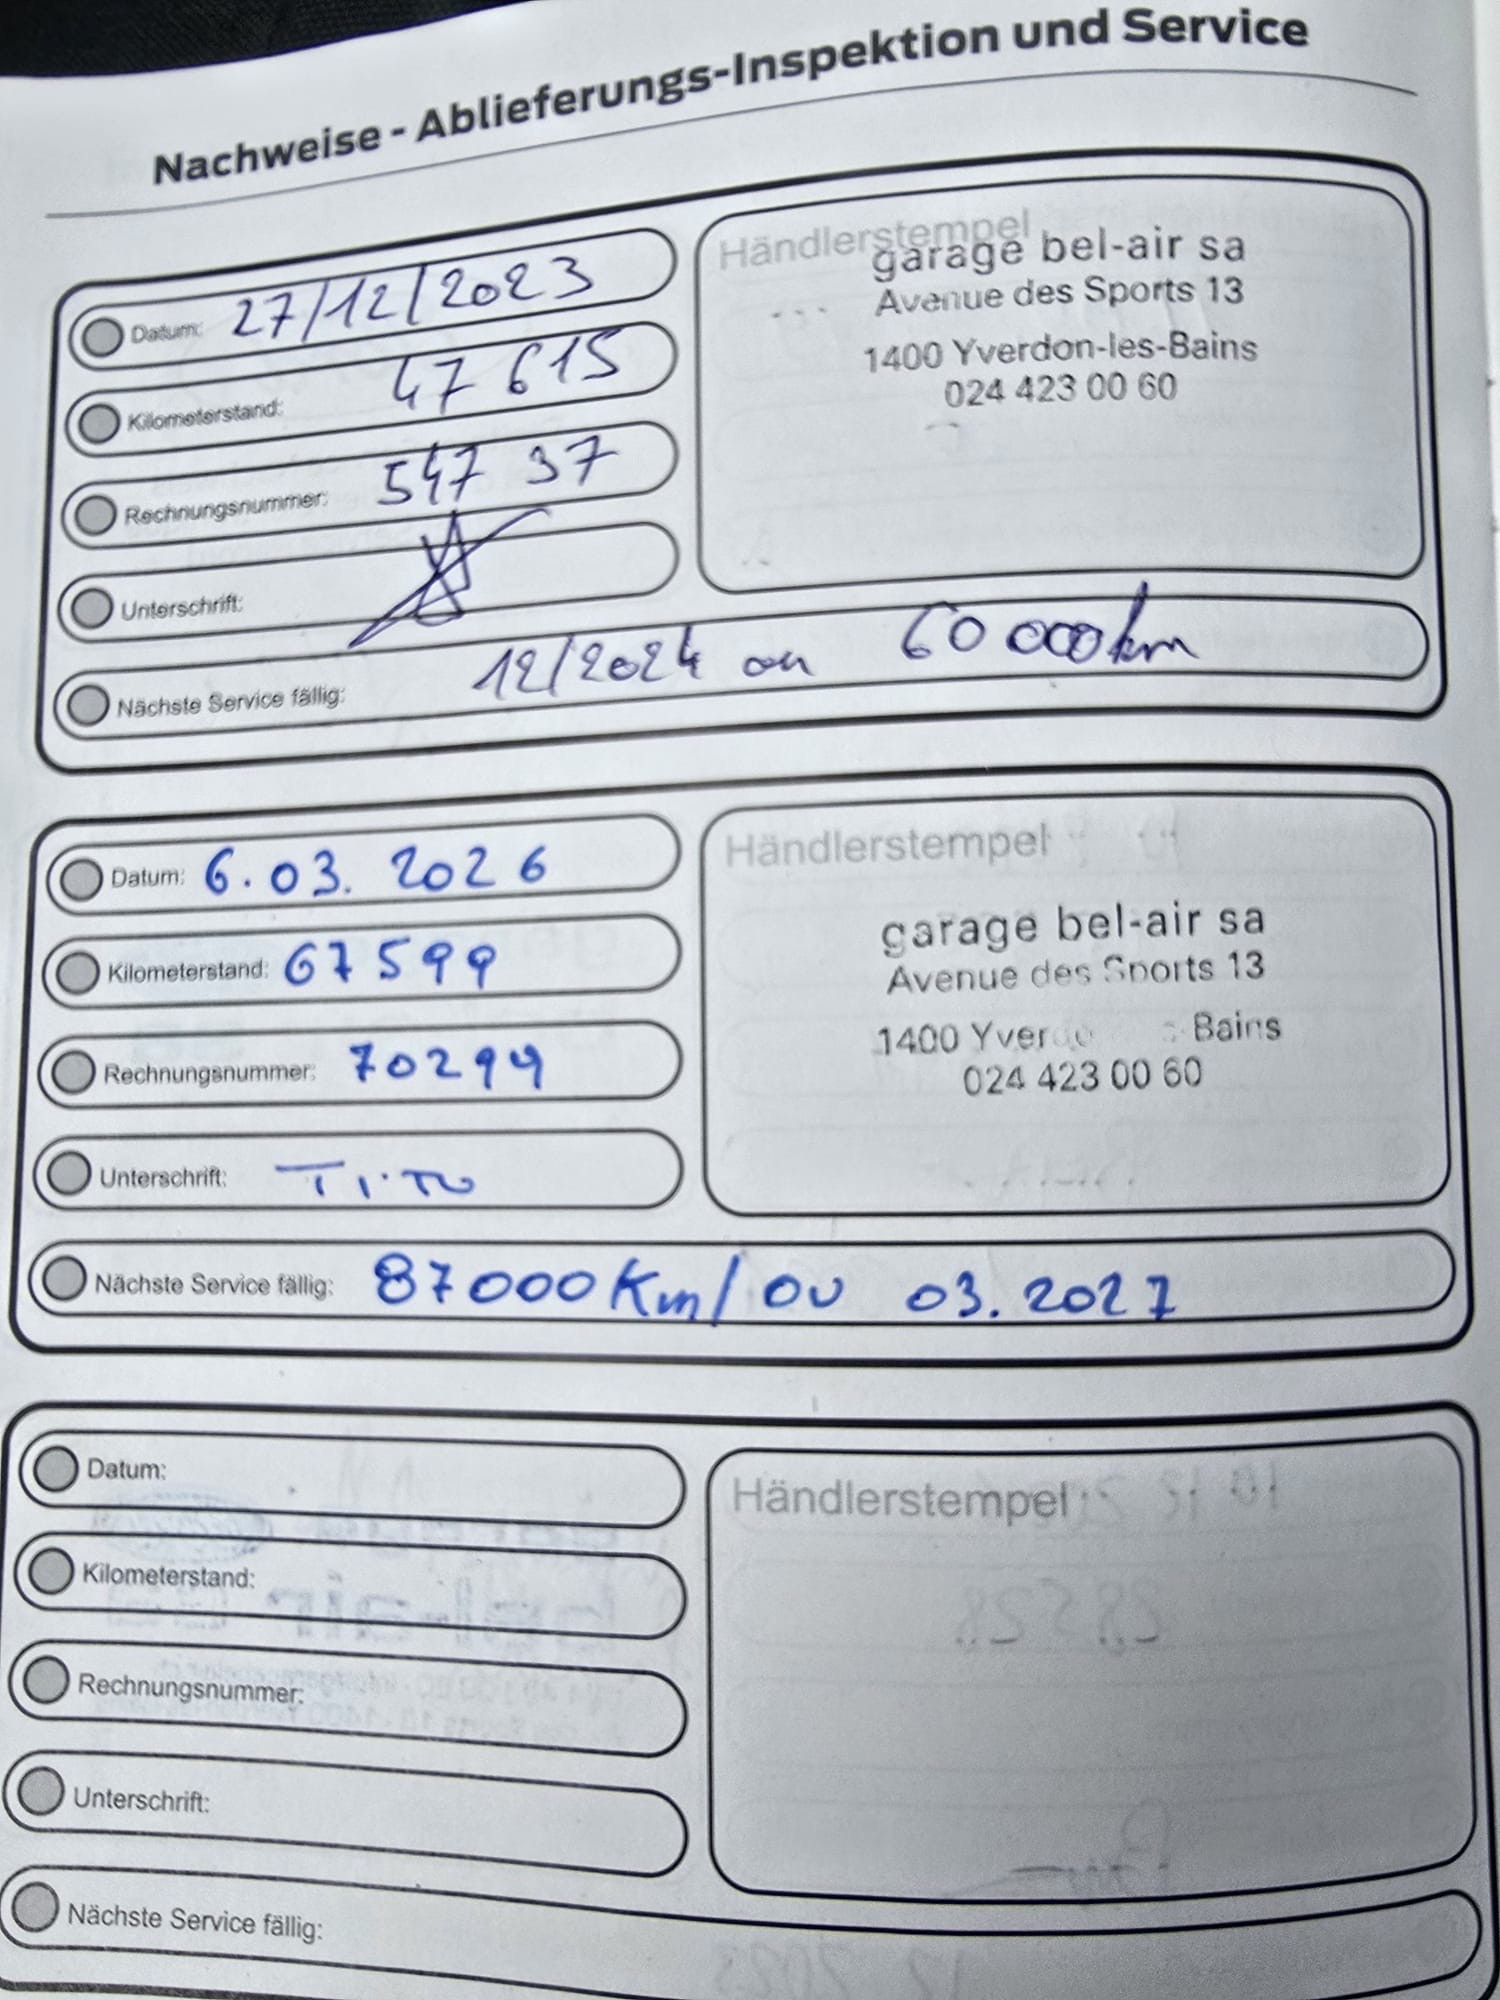 Nachweise - Ablieferungs-Inspektion und Service
Datum: 27/12/2023
Kilometerstand: 47 615
Rechnungsnummer: 547 37
Unterschrift:
Nächste Service fällig: 12/2024 ou 60 000 km
Händlerstempel
garage bel-air sa
Avenue des Sports 13
1400 Yverdon-les-Bains
024 423 00 60
Datum: 6.03.2026
Kilometerstand: 67599
Rechnungsnummer: 70294
Unterschrift:
Nächste Service fällig: 87000 Km/ ou 03.2027
Händlerstempel
garage bel-air sa
Avenue des Sports 13
1400 Bains
024 423 00 60
Datum:
Kilometerstand:
Rechnungsnummer:
Unterschrift:
Nächste Service fällig:
Händlerstempel